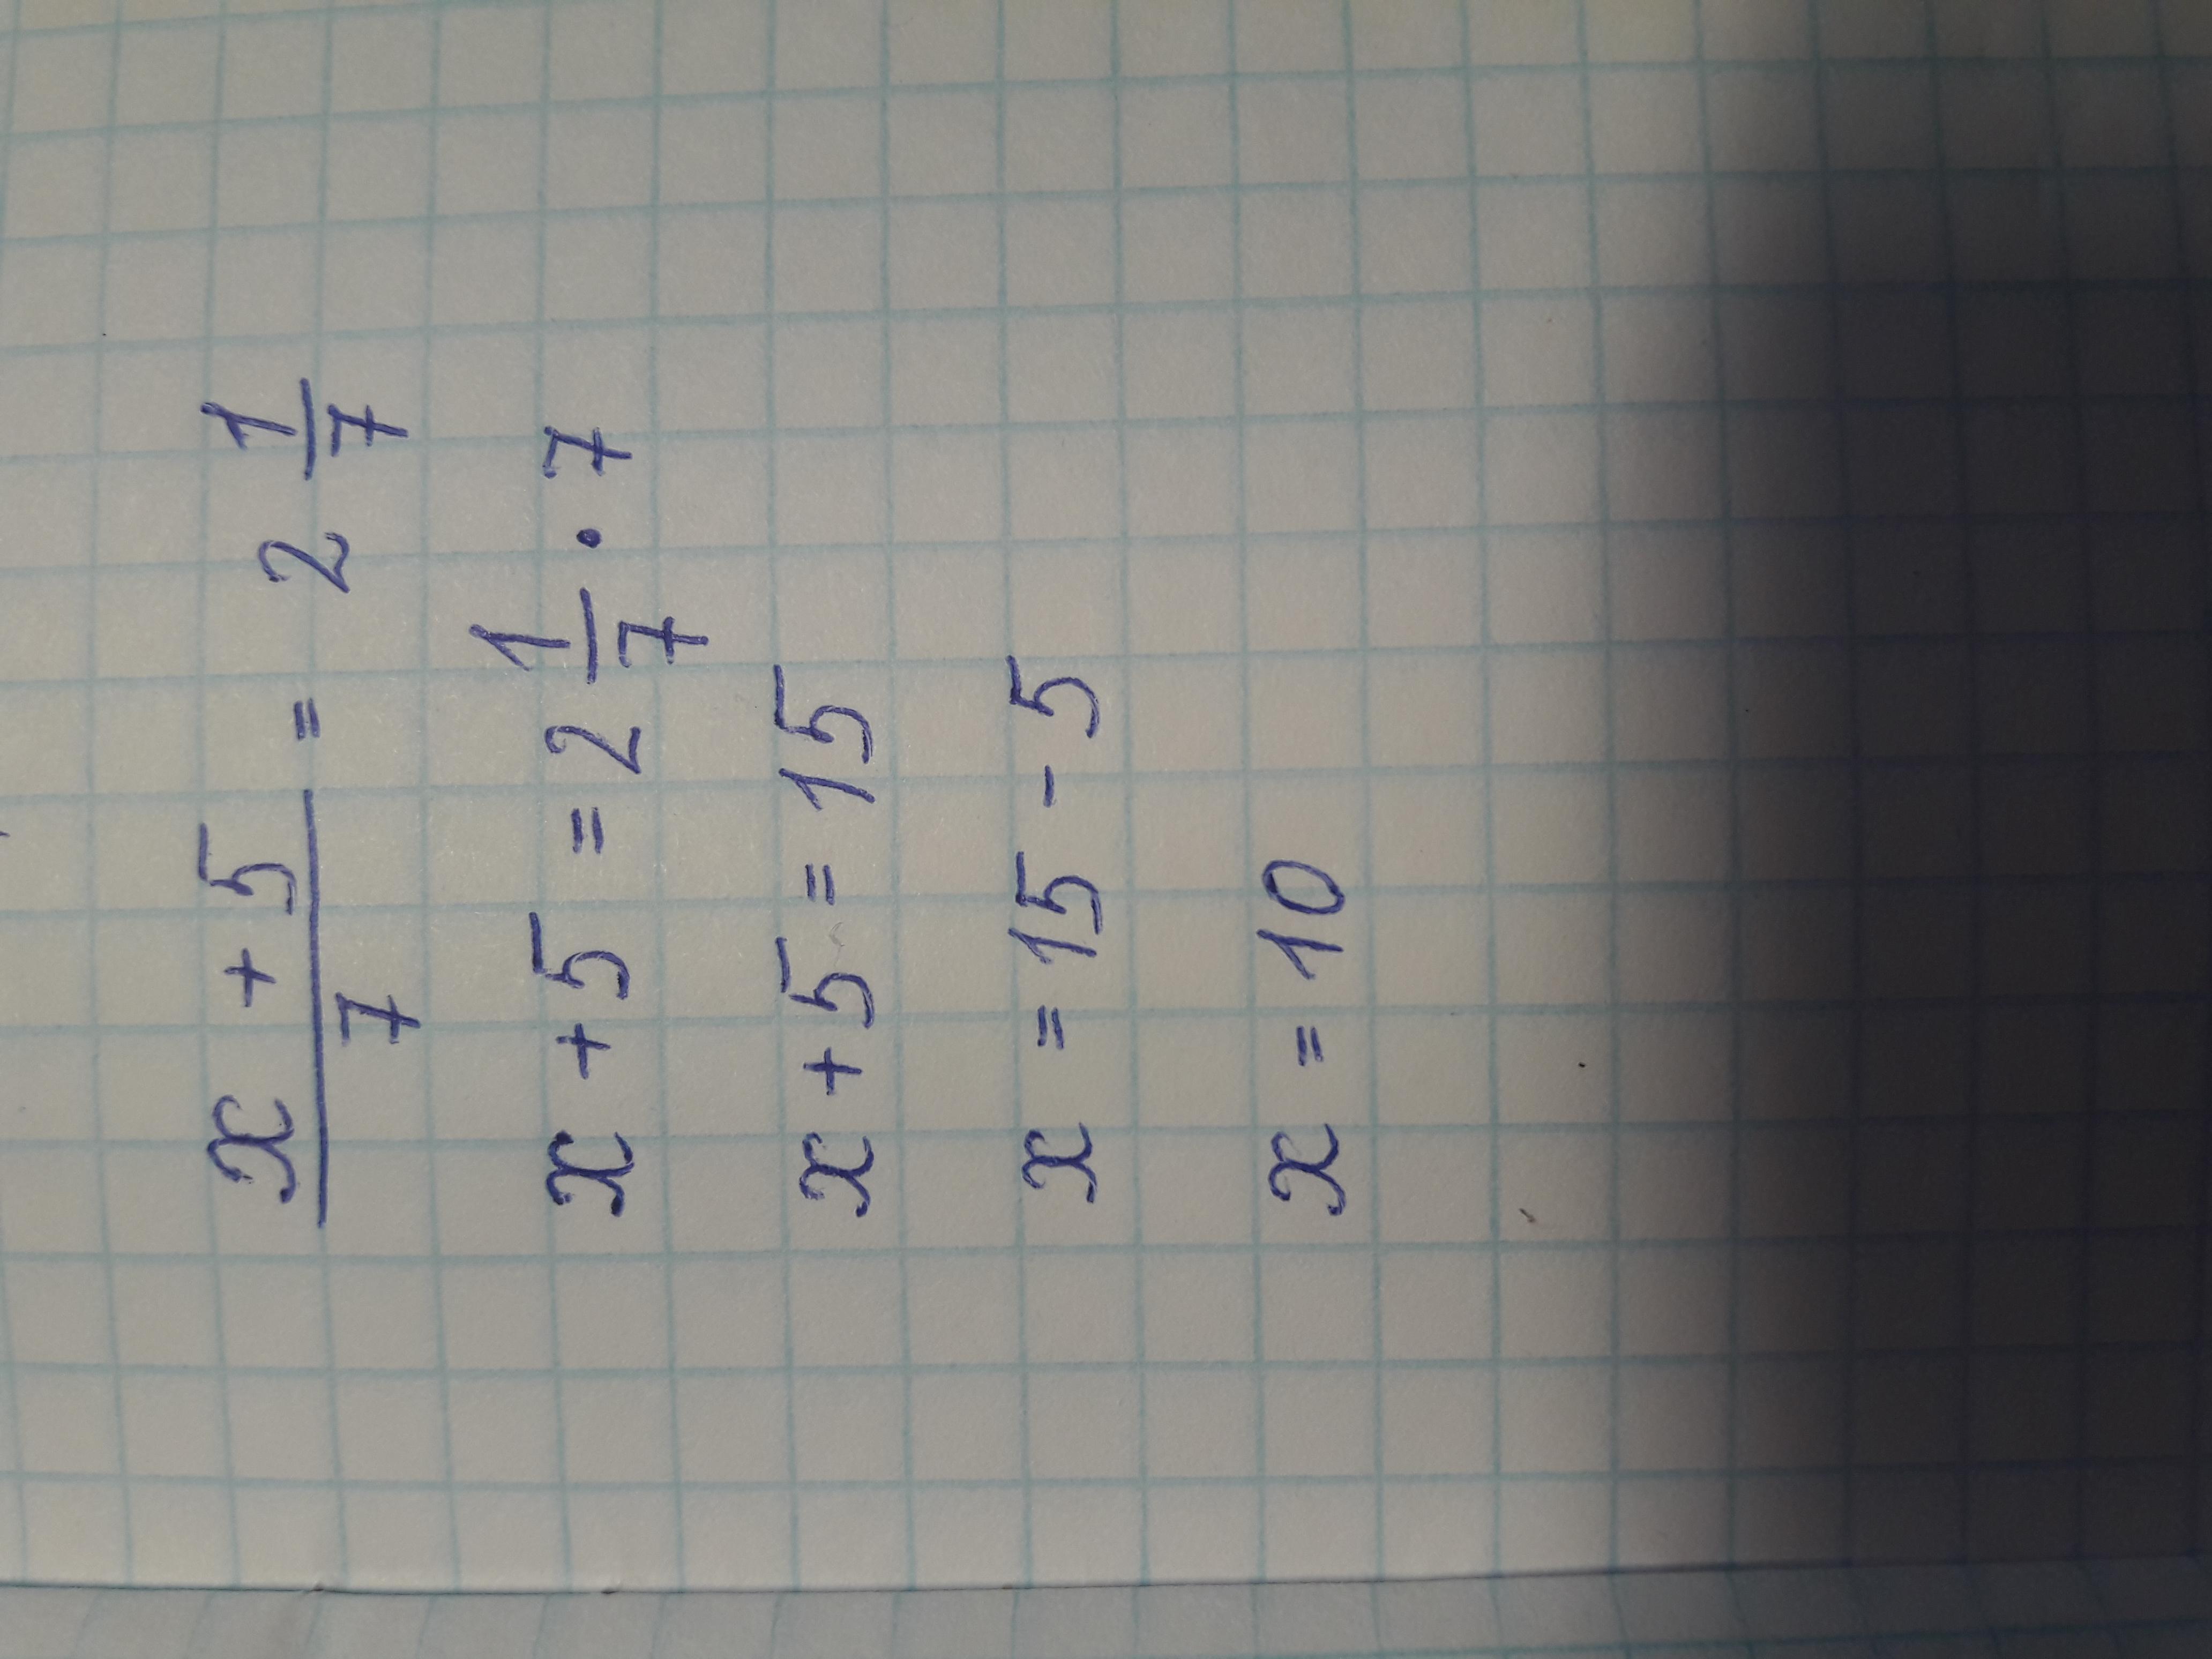 x + 5 / 7 = 2 1/7
x + 5 = 2 1/7 · 7
x + 5 = 15
x = 15 - 5
x = 10